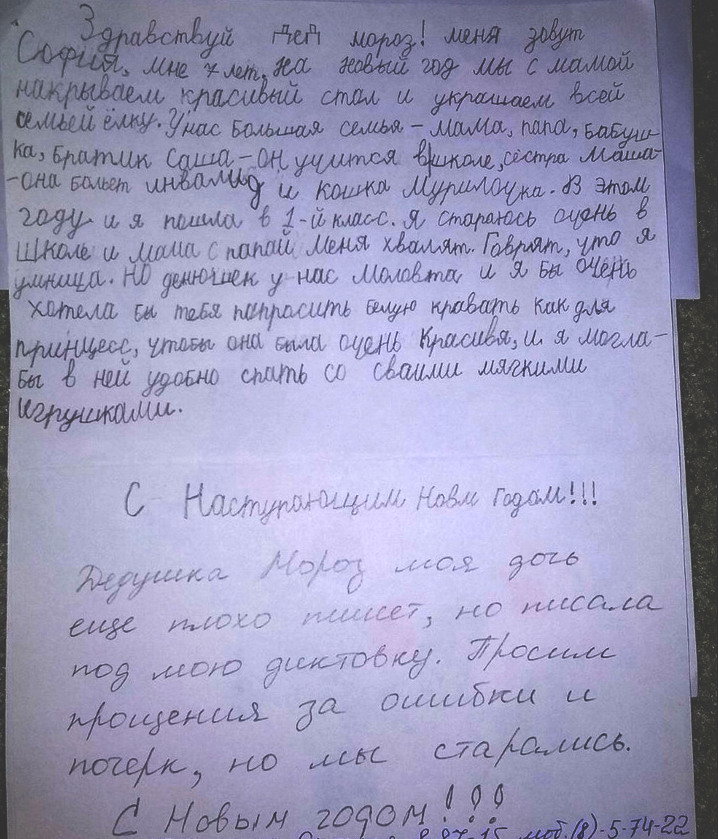 Здравствуй дед мороз! меня зовут
София, мне 7 лет, на новый год мы с мамой
накрываем красивый стал и украшаем всей
семьей ёлку. У нас большая семья - мама, папа, бабуш-
ка, братик Саша - он учится в школе, сестра Маша-
-она бальет инвалид и кошка Мурилочка. В этом
году и я пошла в 1-й класс. Я стараюсь очень в
школе и мама с папай меня хвалят. Говрят, что я
умница. Но денюшек у нас маловта и я бы очень
хотела бы тебя папрасить белую кравать как для
принцесс, чтобы она была очень красивя, и я могла-
бы в ней удобно спать со сваими мягкими
игрушками.
С Наступающим Новм Годом!!!
Дедушка Мороз моя дочь
еще плохо пишет, но писала
под мою диктовку. Просим
прощения за ошибки и
почерк, но мы старались.
С Новым годом!!!
моб.(8)-5-74-22